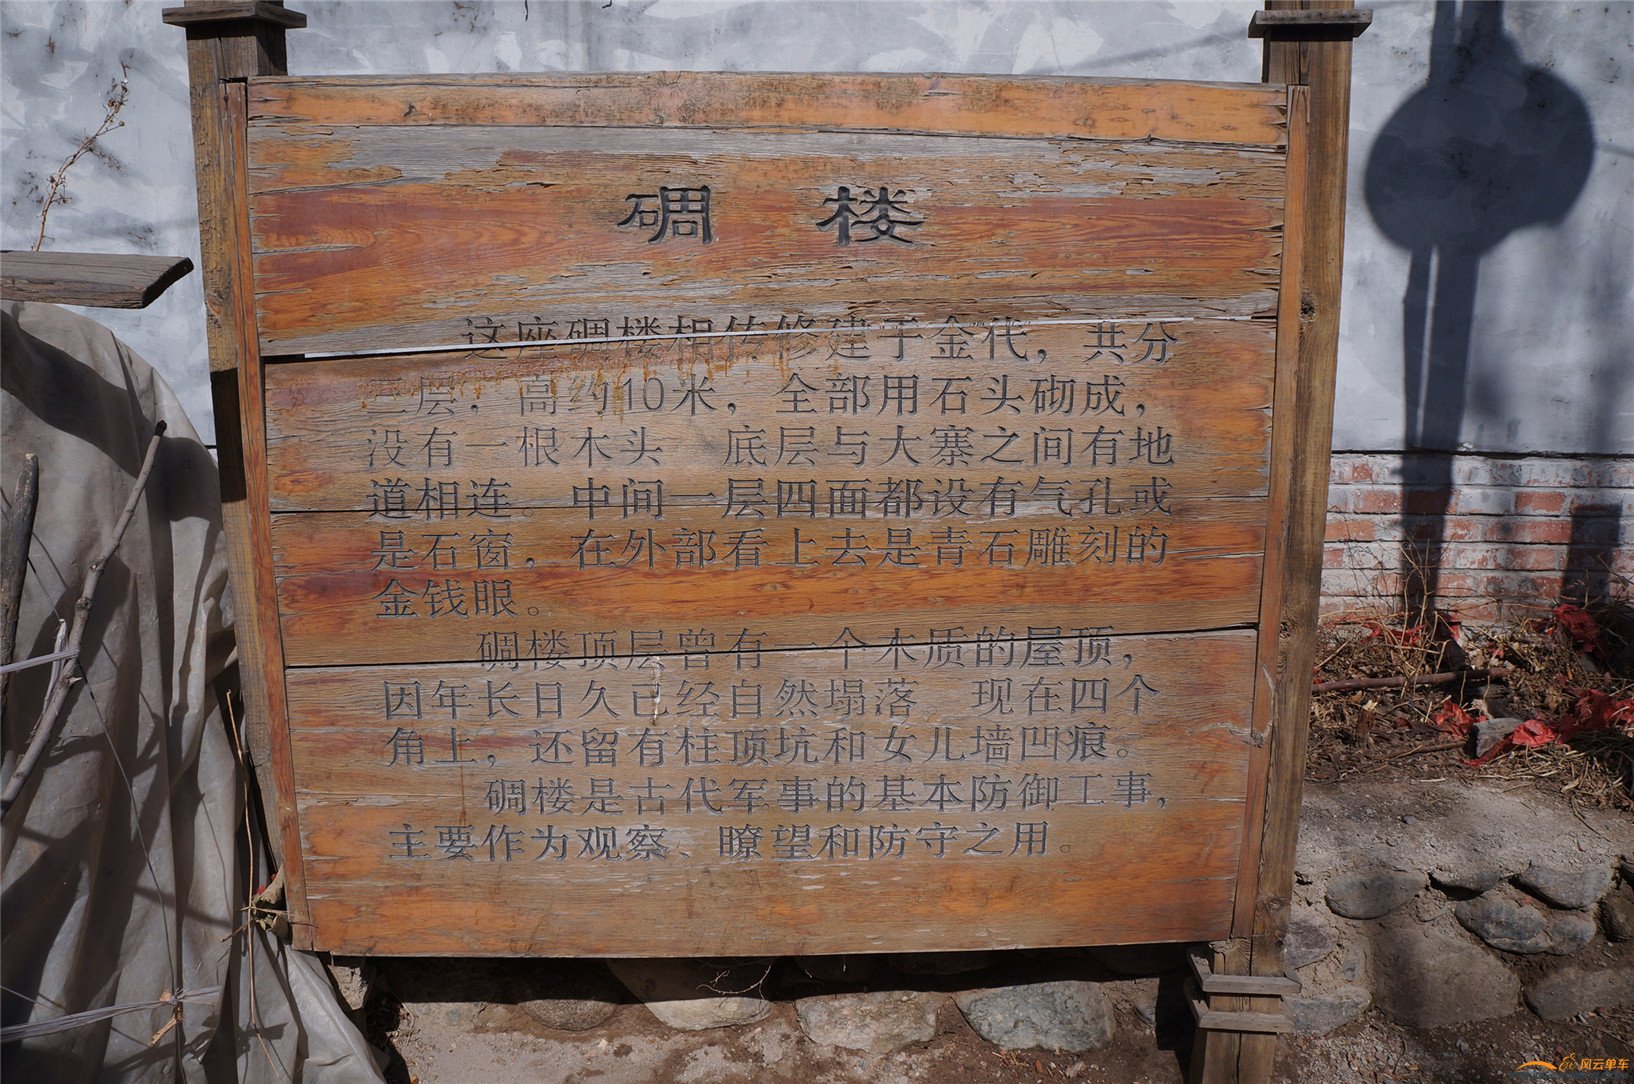 碉 楼
这座碉楼相传修建于金代，共分
三层，高约10米，全部用石头砌成，
没有一根木头 底层与大寨之间有地
道相连。中间一层四面都设有气孔或
是石窗，在外部看上去是青石雕刻的
金钱眼。
碉楼顶层曾有一个木质的屋顶，
因年长日久己经自然塌落 现在四个
角上，还留有柱顶坑和女儿墙凹痕。
碉楼是古代军事的基本防御工事，
主要作为观察、瞭望和防守之用。
风云单车